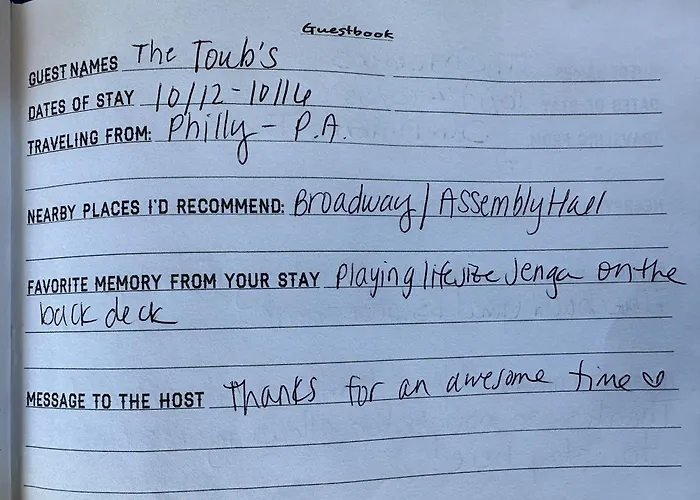 Guestbook
GUEST NAMES The Toub's
DATES OF STAY 10/12-10/14
TRAVELING FROM: Philly - P.A.
NEARBY PLACES I'D RECOMMEND: Broadway / Assembly Hall
FAVORITE MEMORY FROM YOUR STAY Playing lifesize Jenga on the
back deck
MESSAGE TO THE HOST Thanks for an awesome time